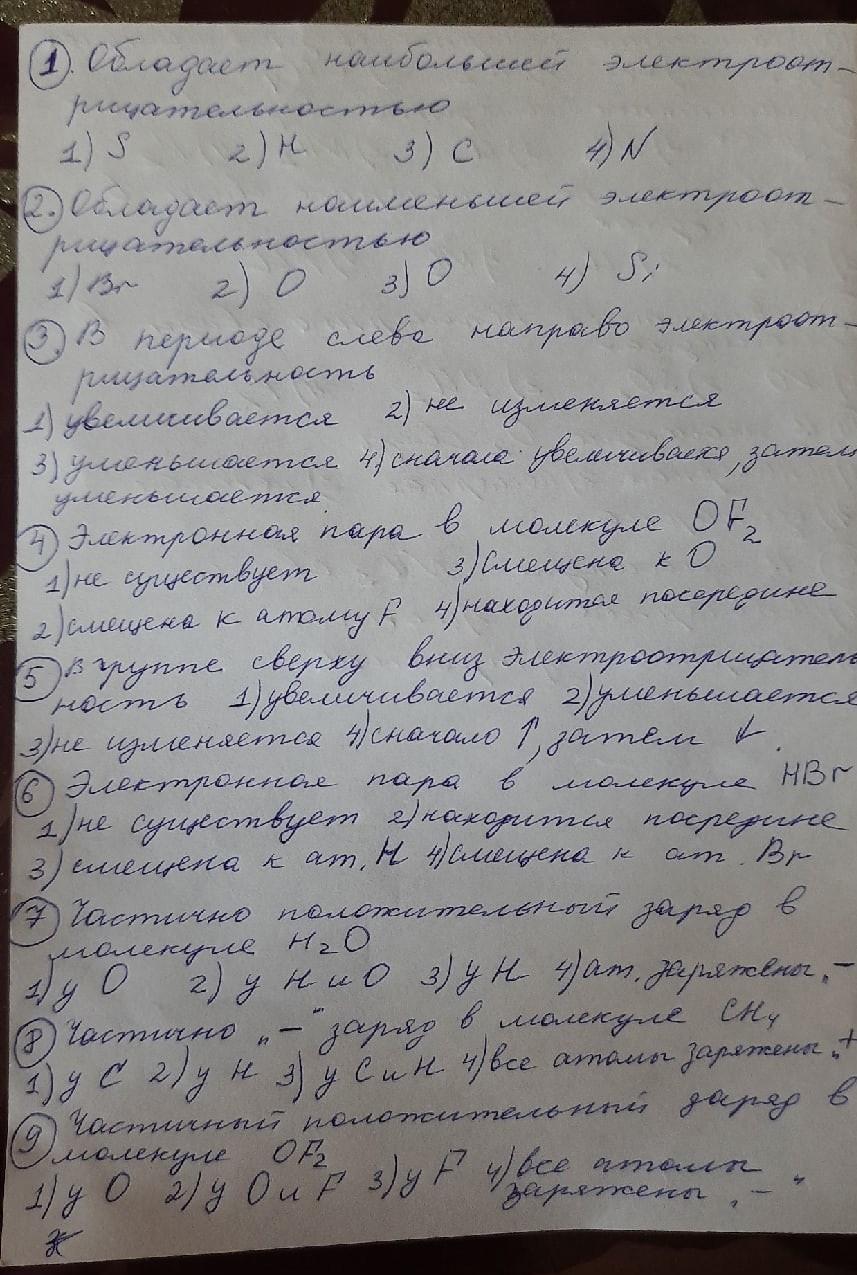 1. Обладает наибольшей электроот-
рицательностью
1) S 2) H 3) C 4) N
2. Обладает наименьшей электроот-
рицательностью
1) Br 2) O 3) O 4) Si
3. В периоде слева направо электроот-
рицательность
1) увеличивается 2) не изменяется
3) уменьшается 4) сначала увеличивается, затем
уменьшается
4 Электронная пара в молекуле OF2
1) не существует 3) Смещена к O
2) смещена к атому F 4) находится посередине
5 В группе сверху вниз электроотрицатель
ность 1) увеличивается 2) уменьшается
3) не изменяется 4) сначало ↑, затем ↓.
6 Электронная пара в молекуле HBr
1) не существует 2) находится посредине
3) смещена к ат. H 4) смещена к ат. Br
7 Частично положительный заряд в
молекуле H2O
1) у O 2) у H и O 3) у H 4) ат. заряжены „–
8 Частично „–" заряд в молекуле CH4
1) у C 2) у H 3) у C и H 4) все атомы заряжены „+
9 Частичный положительный заряд в
молекуле OF2
1) у O 2) у O и F 3) у F 4) все атомы
заряжены „–"